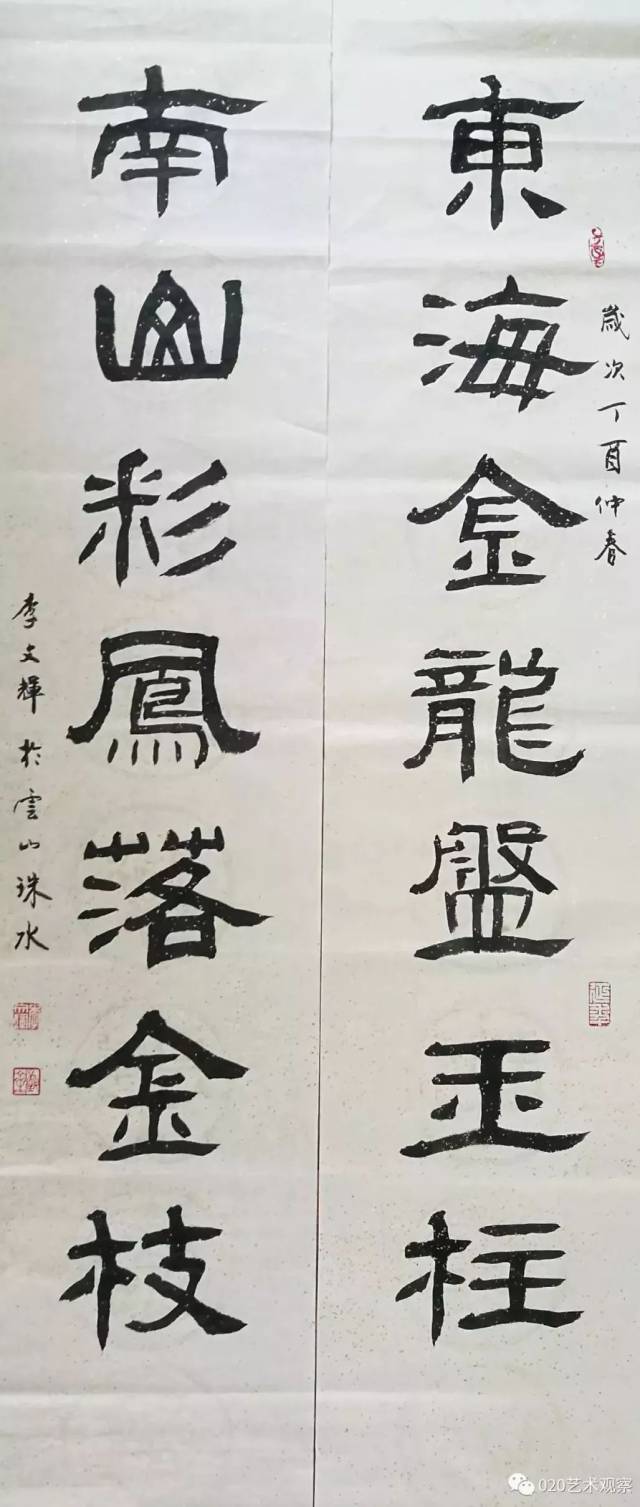 歲次丁酉仲春
東海金龍盤玉柱
南山彩鳳落金枝
李文輝於雲山珠水
020艺术观察